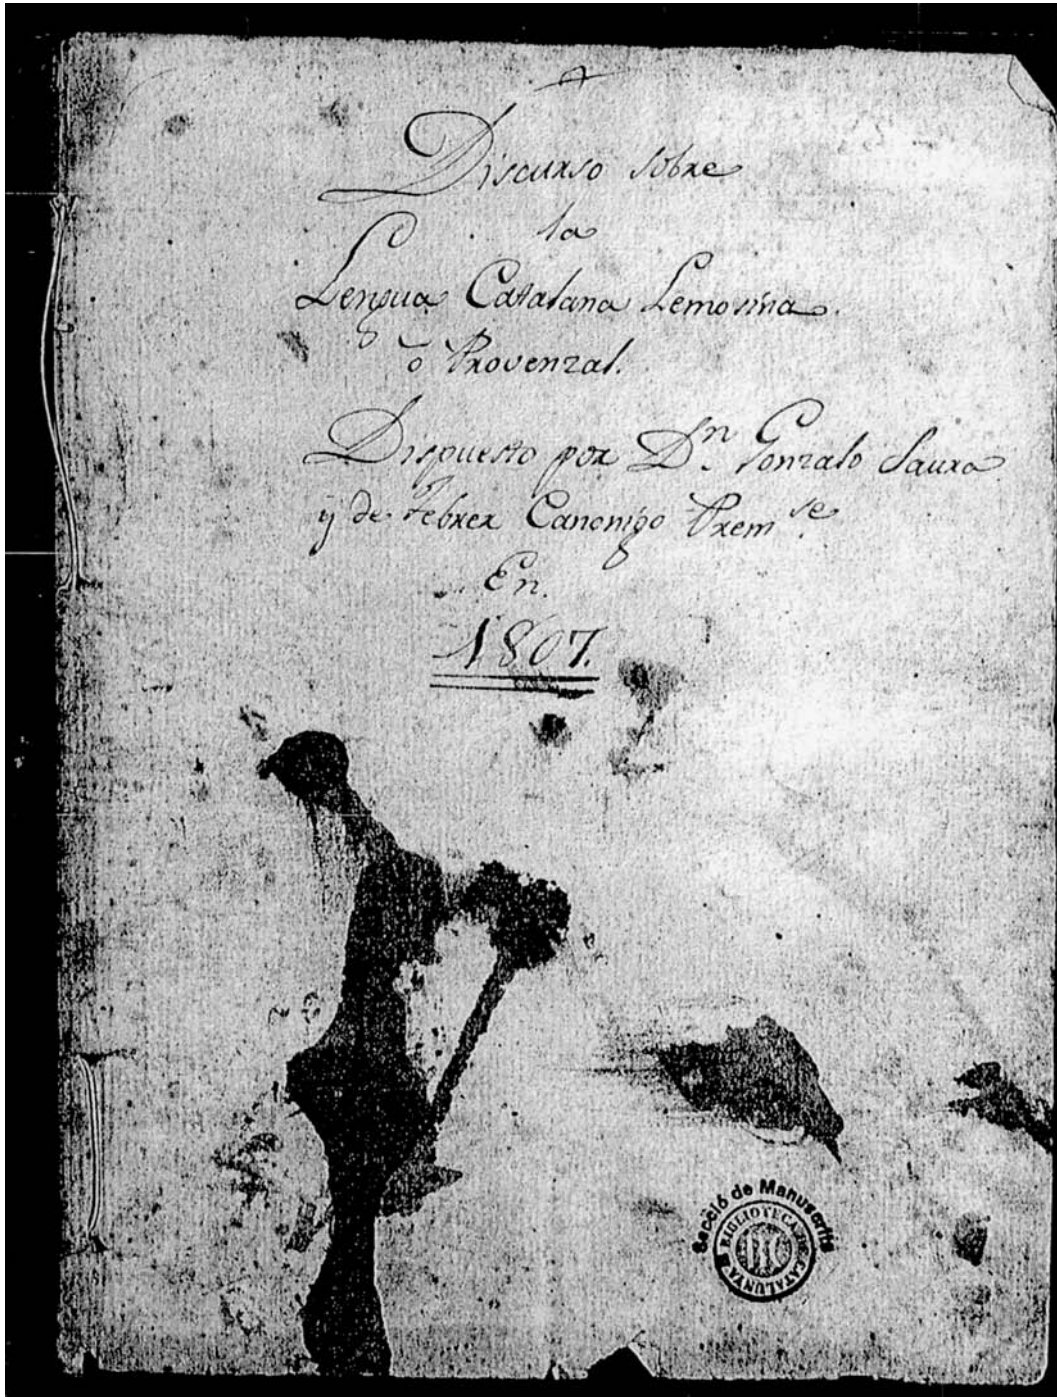 Discurso sobre
la
Lengua Catalana Lemosina
ò Provenzal.
Dispuesto por Dn. Gonzalo Saura
y de Febrer Canonigo Prem.te
En.
1807.
Secció de Manuscrits
BIBLIOTECA DE CATALUNYA
BC